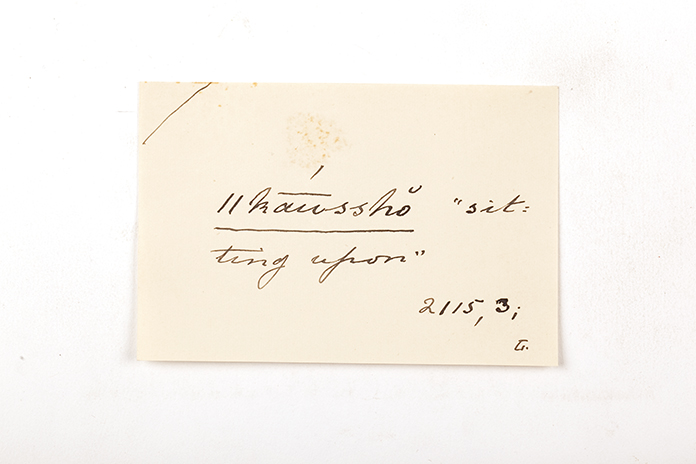 ǁkā́ūsshŏ "sit=
ting upon"
2115, 3;
G.